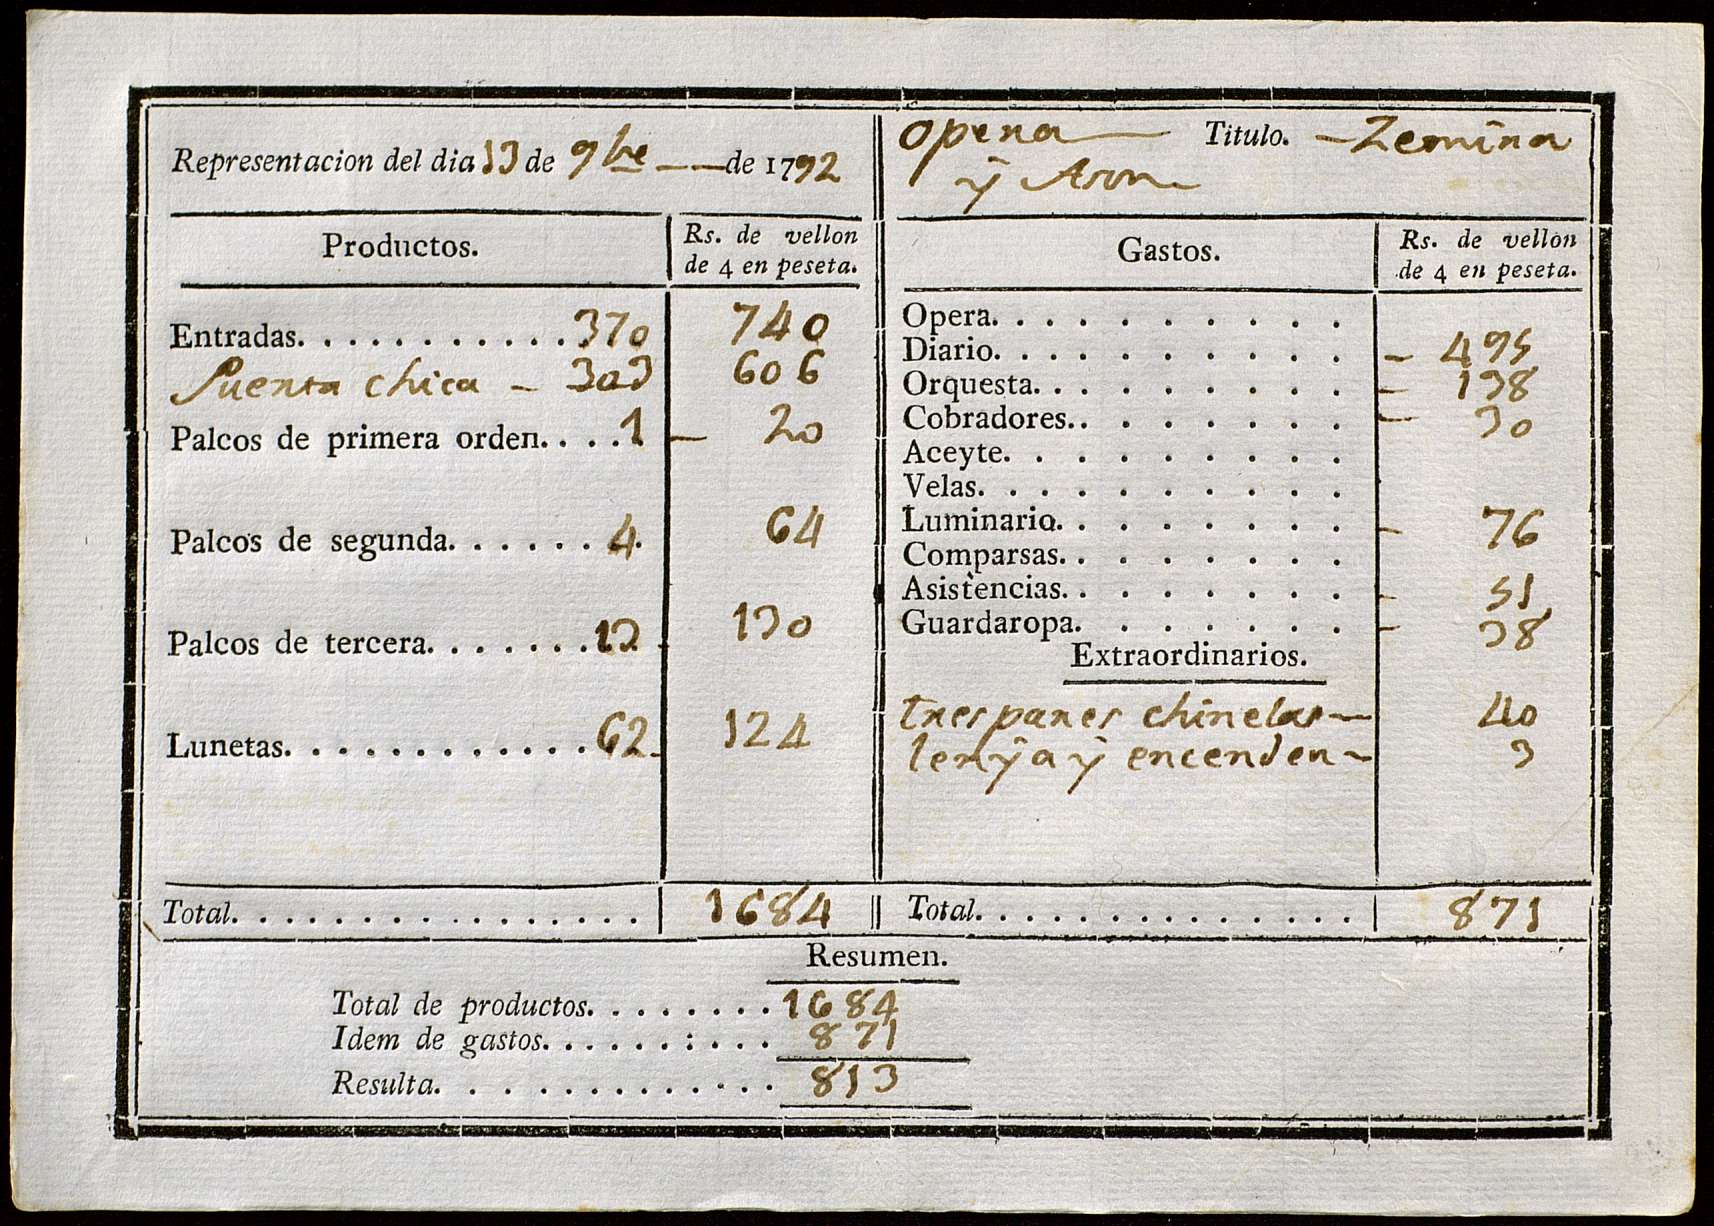 Representacion del dia 13 de 9bre de 1792
Opera Titulo. Zemina
y Asor
Productos.
Rs. de vellon
de 4 en peseta.
Entradas. 370 740
Puerta chica 303 606
Palcos de primera orden. 1 20
Palcos de segunda. 4 64
Palcos de tercera. 13 130
Lunetas. 62 124
Total. 1684
Gastos.
Rs. de vellon
de 4 en peseta.
Opera.
Diario. 495
Orquesta. 138
Cobradores. 30
Aceyte.
Velas.
Luminario. 76
Comparsas.
Asistencias. 51
Guardaropa. 38
Extraordinarios.
tres pares chinelas 40
lenya y encender 3
Total. 871
Resumen.
Total de productos. 1684
Idem de gastos. 871
Resulta. 813